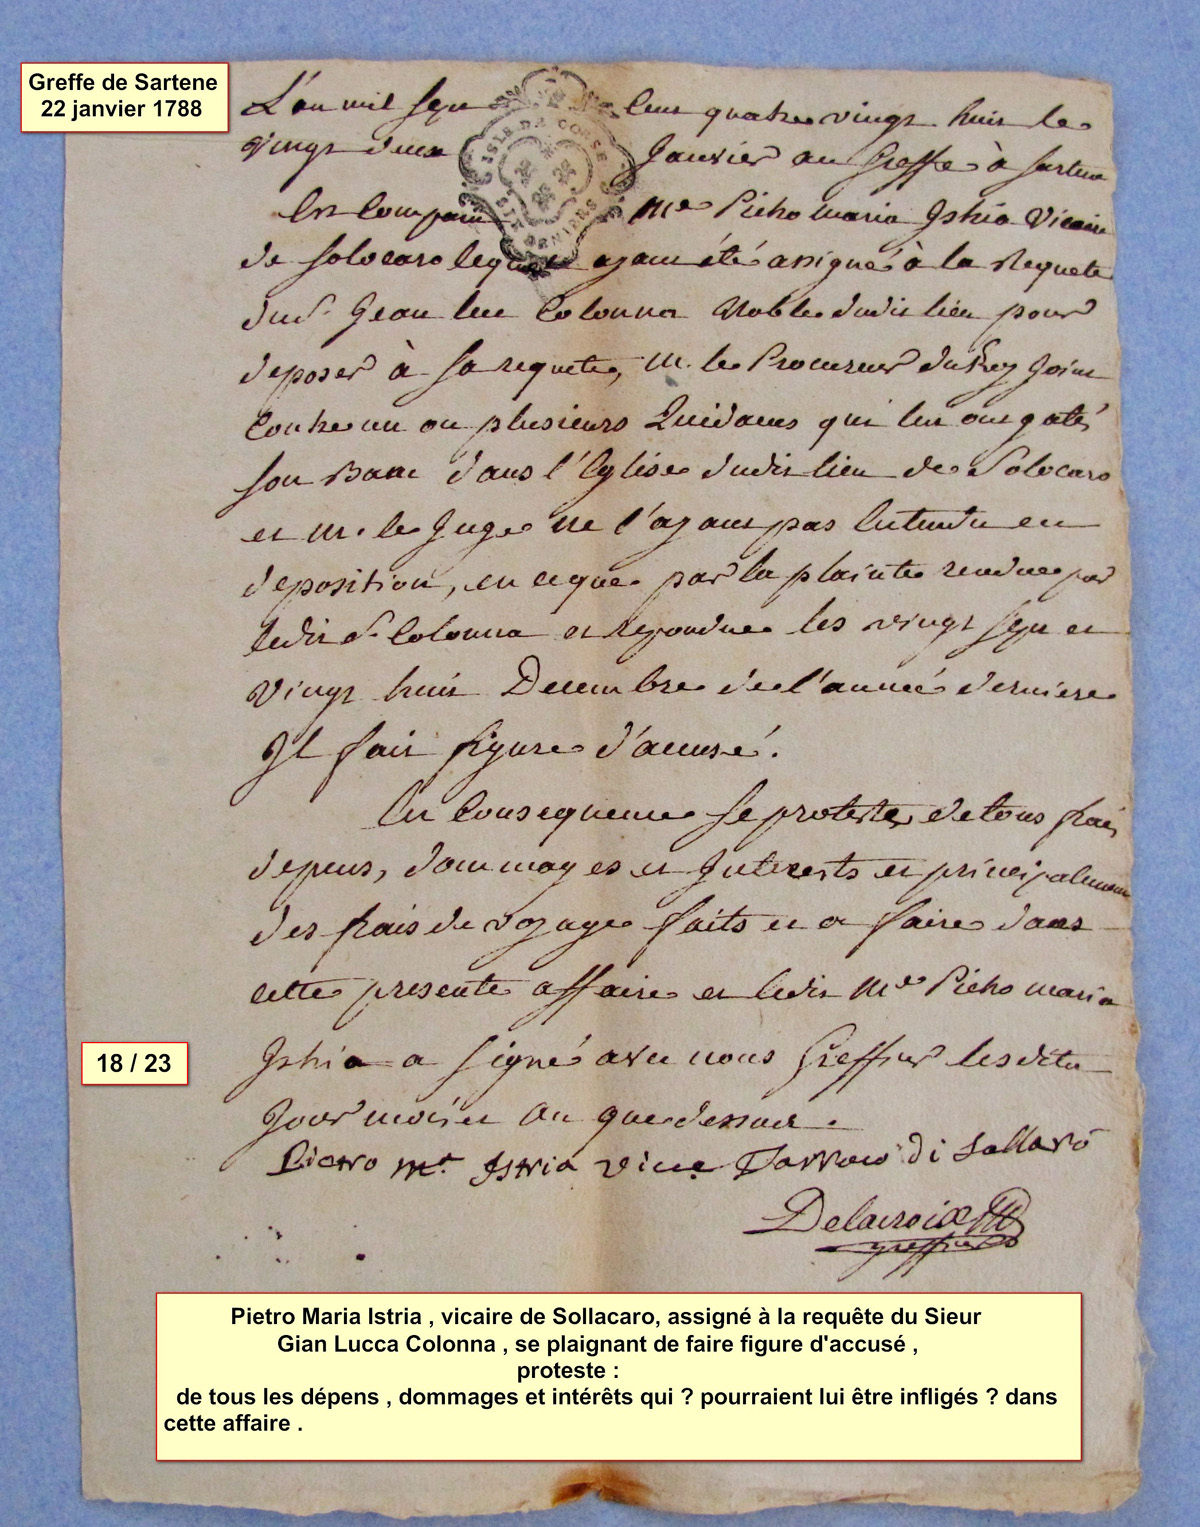 Greffe de Sartene
22 janvier 1788
L'an mil sept cent quatre vingt huit le
vingt deux Janvier au Greffe à Sartene
ISLE DE CORSE
DENIERS
Est Comparu Me Pietro Maria Istria Vicaire
de Solocaro lequel ayant été assigné à la Requete
du Sr Gean luc Colonna Noble dudit lieu pour
deposer à sa requete, M. le Procureur du Roy Joint
Contre un ou plusieurs Quidams qui lui ont gaté
son Banc dans l'Eglise dudit lieu de Solocaro
et M. le Juge ne l'ayant pas Entendu en
deposition, en ce que par la plainte rendue par
ledit Sr Colonna et repondue les vingt sept et
vingt huit Decembre de l'année derniere
Il fait figure d'accusé.
En Consequence se proteste de tous frais
depens, dommages et Interests et principalement
des frais de voyage faits et a faire dans
cette presente affaire et ledit Me Pietro Maria
Istria a signé avec nous Greffier lesdits
Jour mois et an que dessus.
Pietro Ma Istria Vice di Sollacro
Delacroix
greffier
18 / 23
Pietro Maria Istria , vicaire de Sollacaro, assigné à la requête du Sieur
Gian Lucca Colonna , se plaignant de faire figure d'accusé ,
proteste :
de tous les dépens , dommages et intérêts qui ? pourraient lui être infligés ? dans
cette affaire .